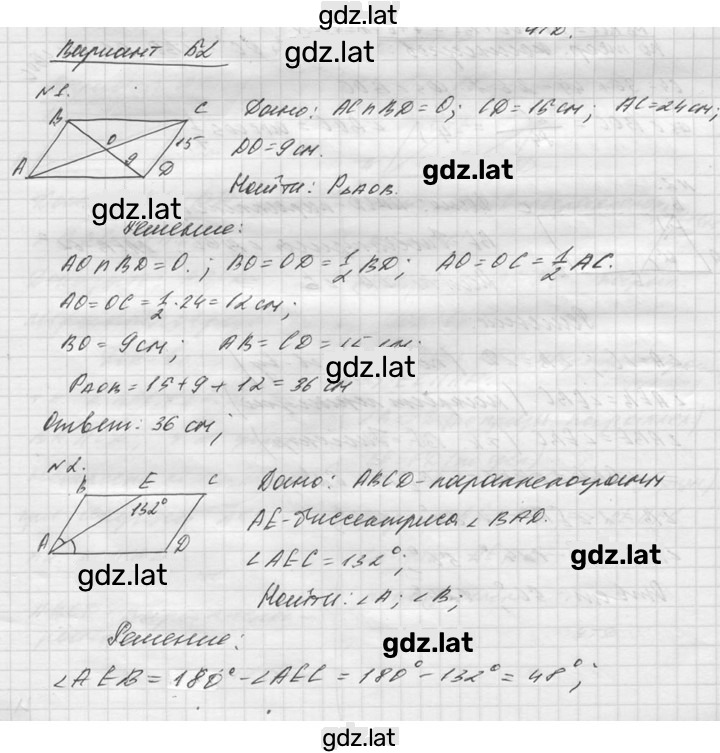 gdz.lat
чтд.
Вариант Б2
gdz.lat
№1.
B C
O 15
9
A D
Дано: AC∩BD=O; CD=15см; AC=24см;
DO=9см.
gdz.lat
Найти: P△AOB.
gdz.lat
Решение:
AO∩BD=O.; BO=OD=1/2 BD; AO=OC=1/2 AC.
AO=OC=1/2·24=12см;
BO=9см; AB=CD=15см.
gdz.lat
PAOB=15+9+12=36см
Ответ: 36см;
№2.
B E C
132°
A D
Дано: ABCD-параллелограмм
AE-биссектриса ∠BAD.
gdz.lat
∠AEC=132°;
gdz.lat
Найти: ∠A; ∠B;
Решение:
gdz.lat
∠AEB=180°-∠AEC=180°-132°=48°;
gdz.lat